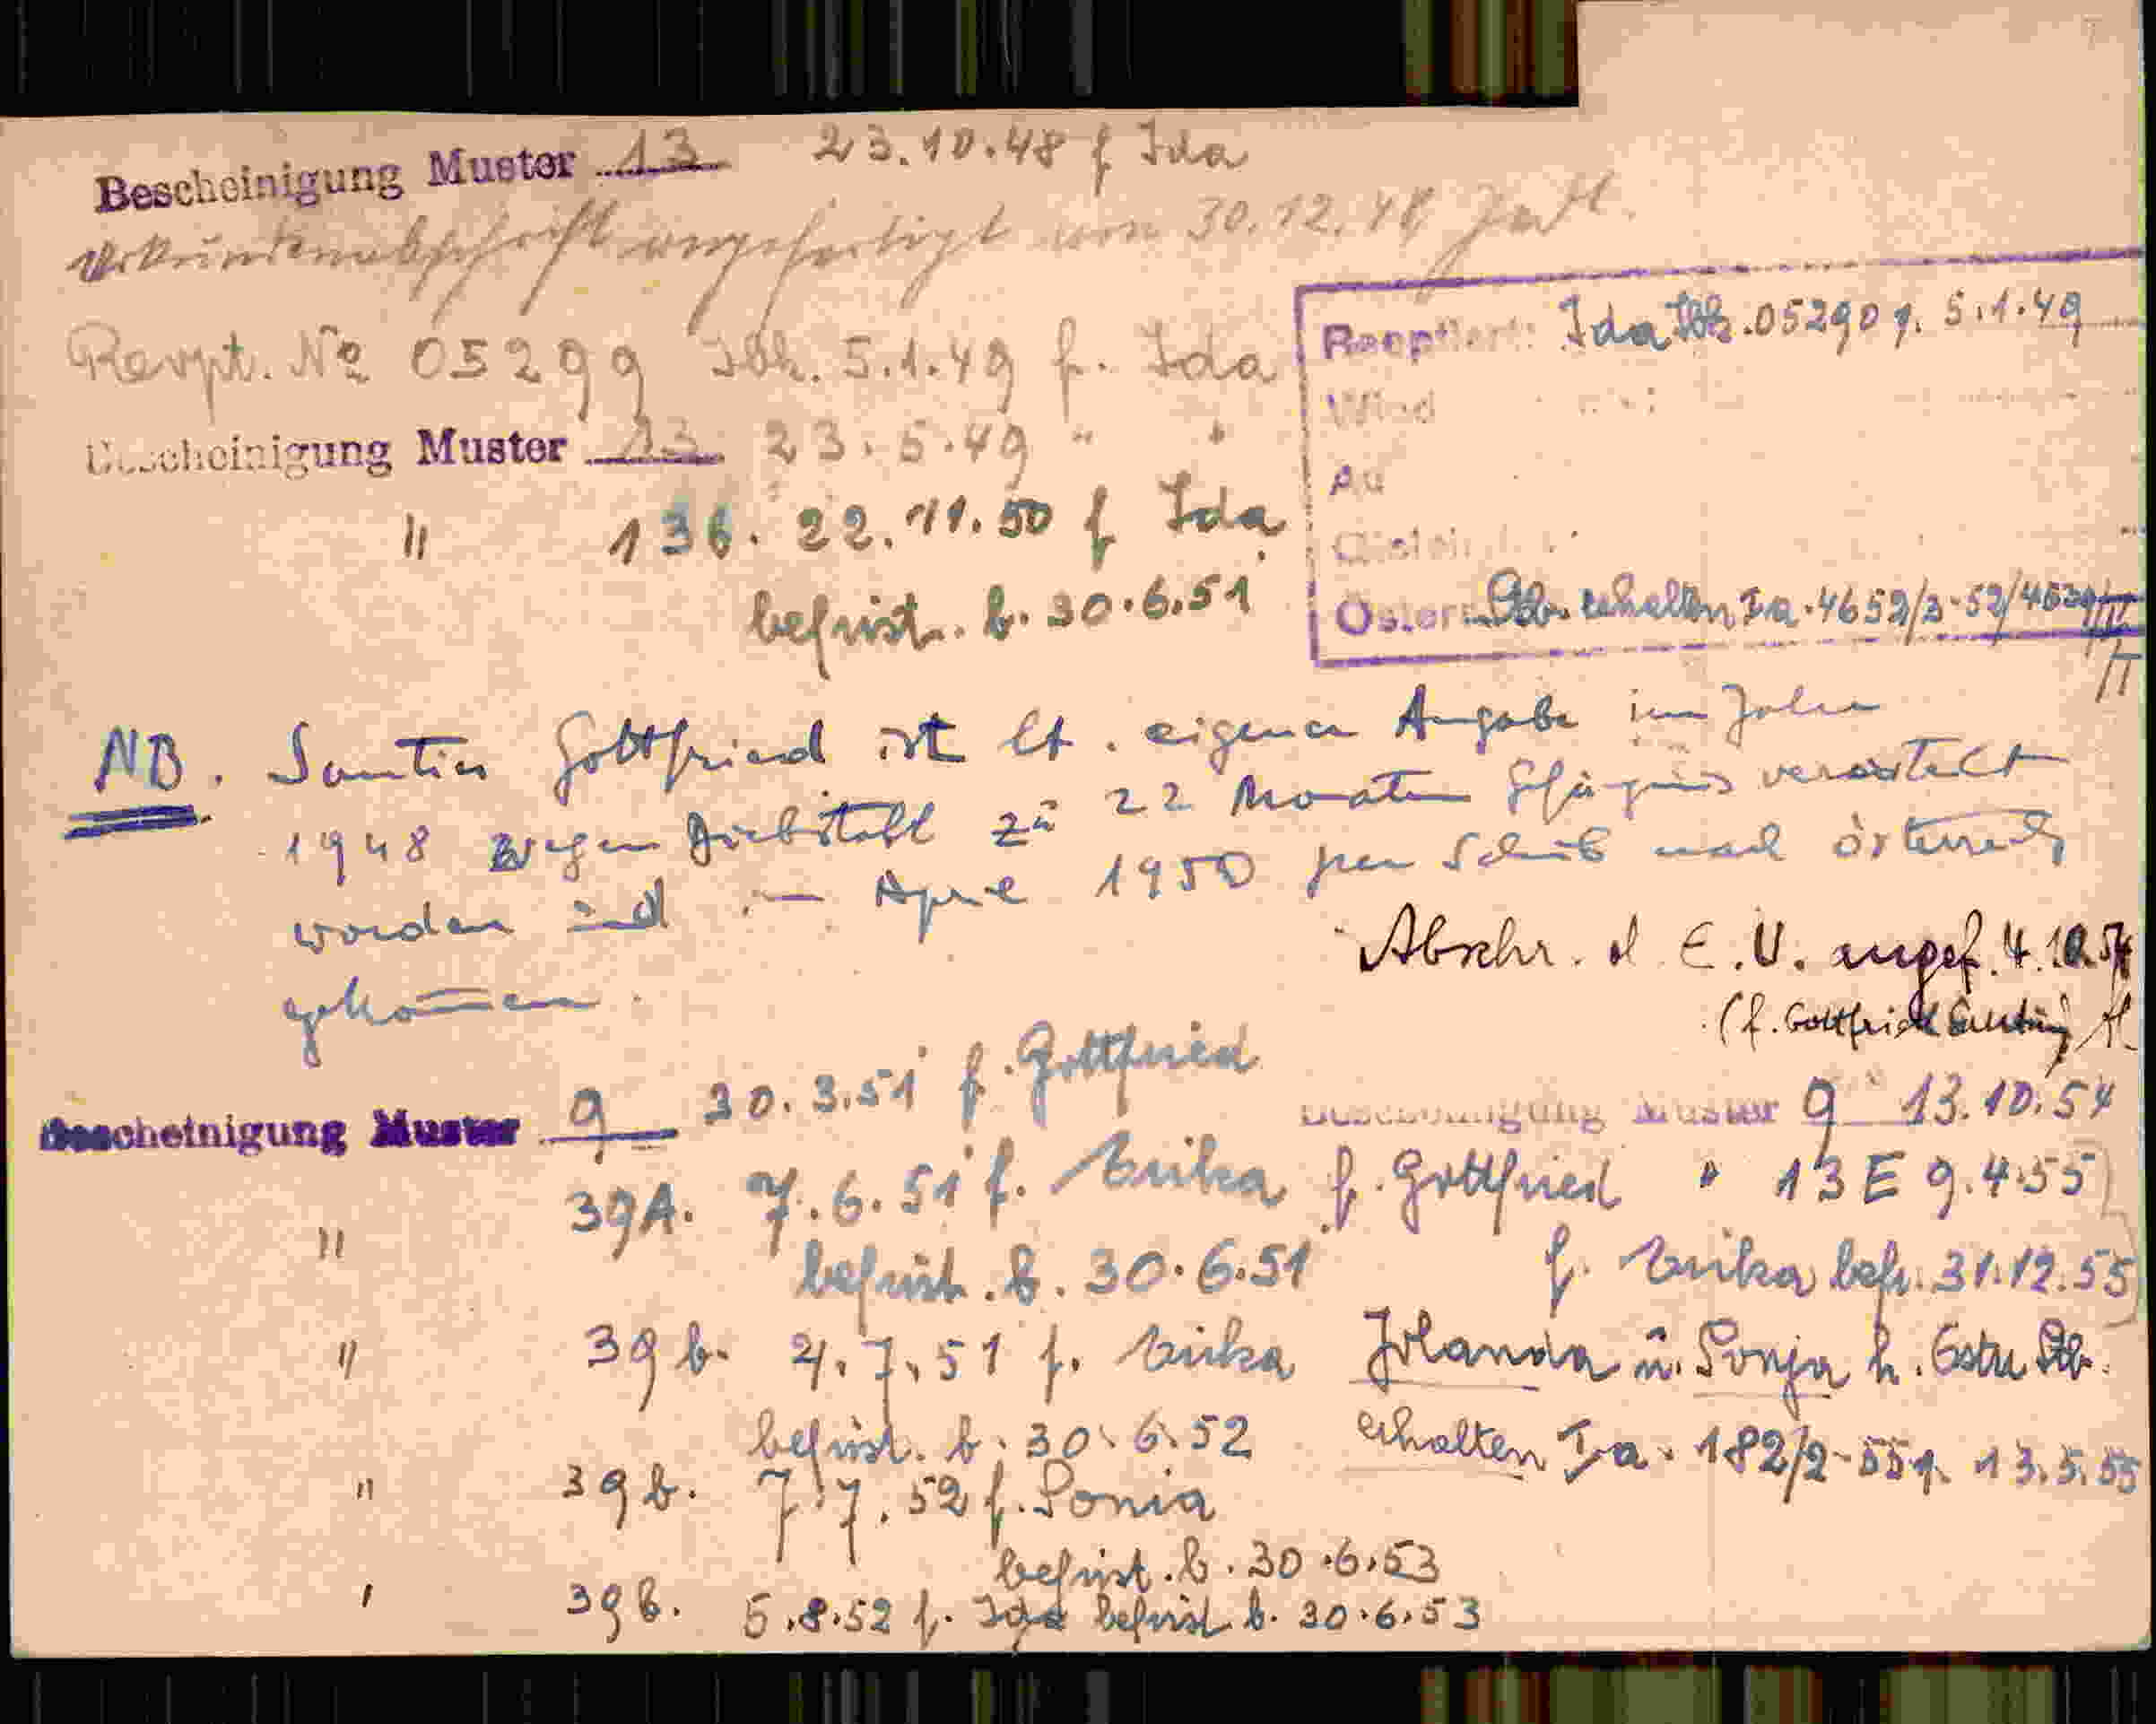 Bescheinigung Muster 13 23.10.48 f Ida
Urkundenabschrift angefertigt am 30.12.48
Revpt. No 05299 Ibk. 5.1.49 f. Ida
Reoptiert: Ida Ibk. 05290 v. 5.1.49
Wied
Au
Bescheinigung Muster 13 23.5.49 " "
" 13b. 22.11.50 f Ida
befrist. b. 30.6.51
Österr. Stb. erhalten Ia-4652/3-52/4639/II
II
NB. Gottfried ist lt. eigener Angabe im Jahre
1948 wegen Diebstahl zu 22 Monaten Gefängnis verurteilt
worden und im April 1950 per Schub nach Österreich
gekommen.
Abschr. d E.U. angef. 4.10.54
(f. Gottfried
Bescheinigung Muster 9 30.3.51 f. Gottfried
" 39A. 7.6.51 f. Erika
befrist. b. 30.6.51
" 39b. 4.7.51 f. Erika
befrist. b. 30.6.52
" 39b. 7.7.52 f. Sonia
befrist. b. 30.6.53
" 39b. 5.8.52 f. Ida befrist b. 30.6.53
Bescheinigung Muster 9 13.10.54
f. Gottfried " 13E 9.4.55
f. Erika befr. 31.12.55
Jolanda u. Sonja h. Östr. Stb.
erhalten Ia-182/2-55 v. 13.5.55